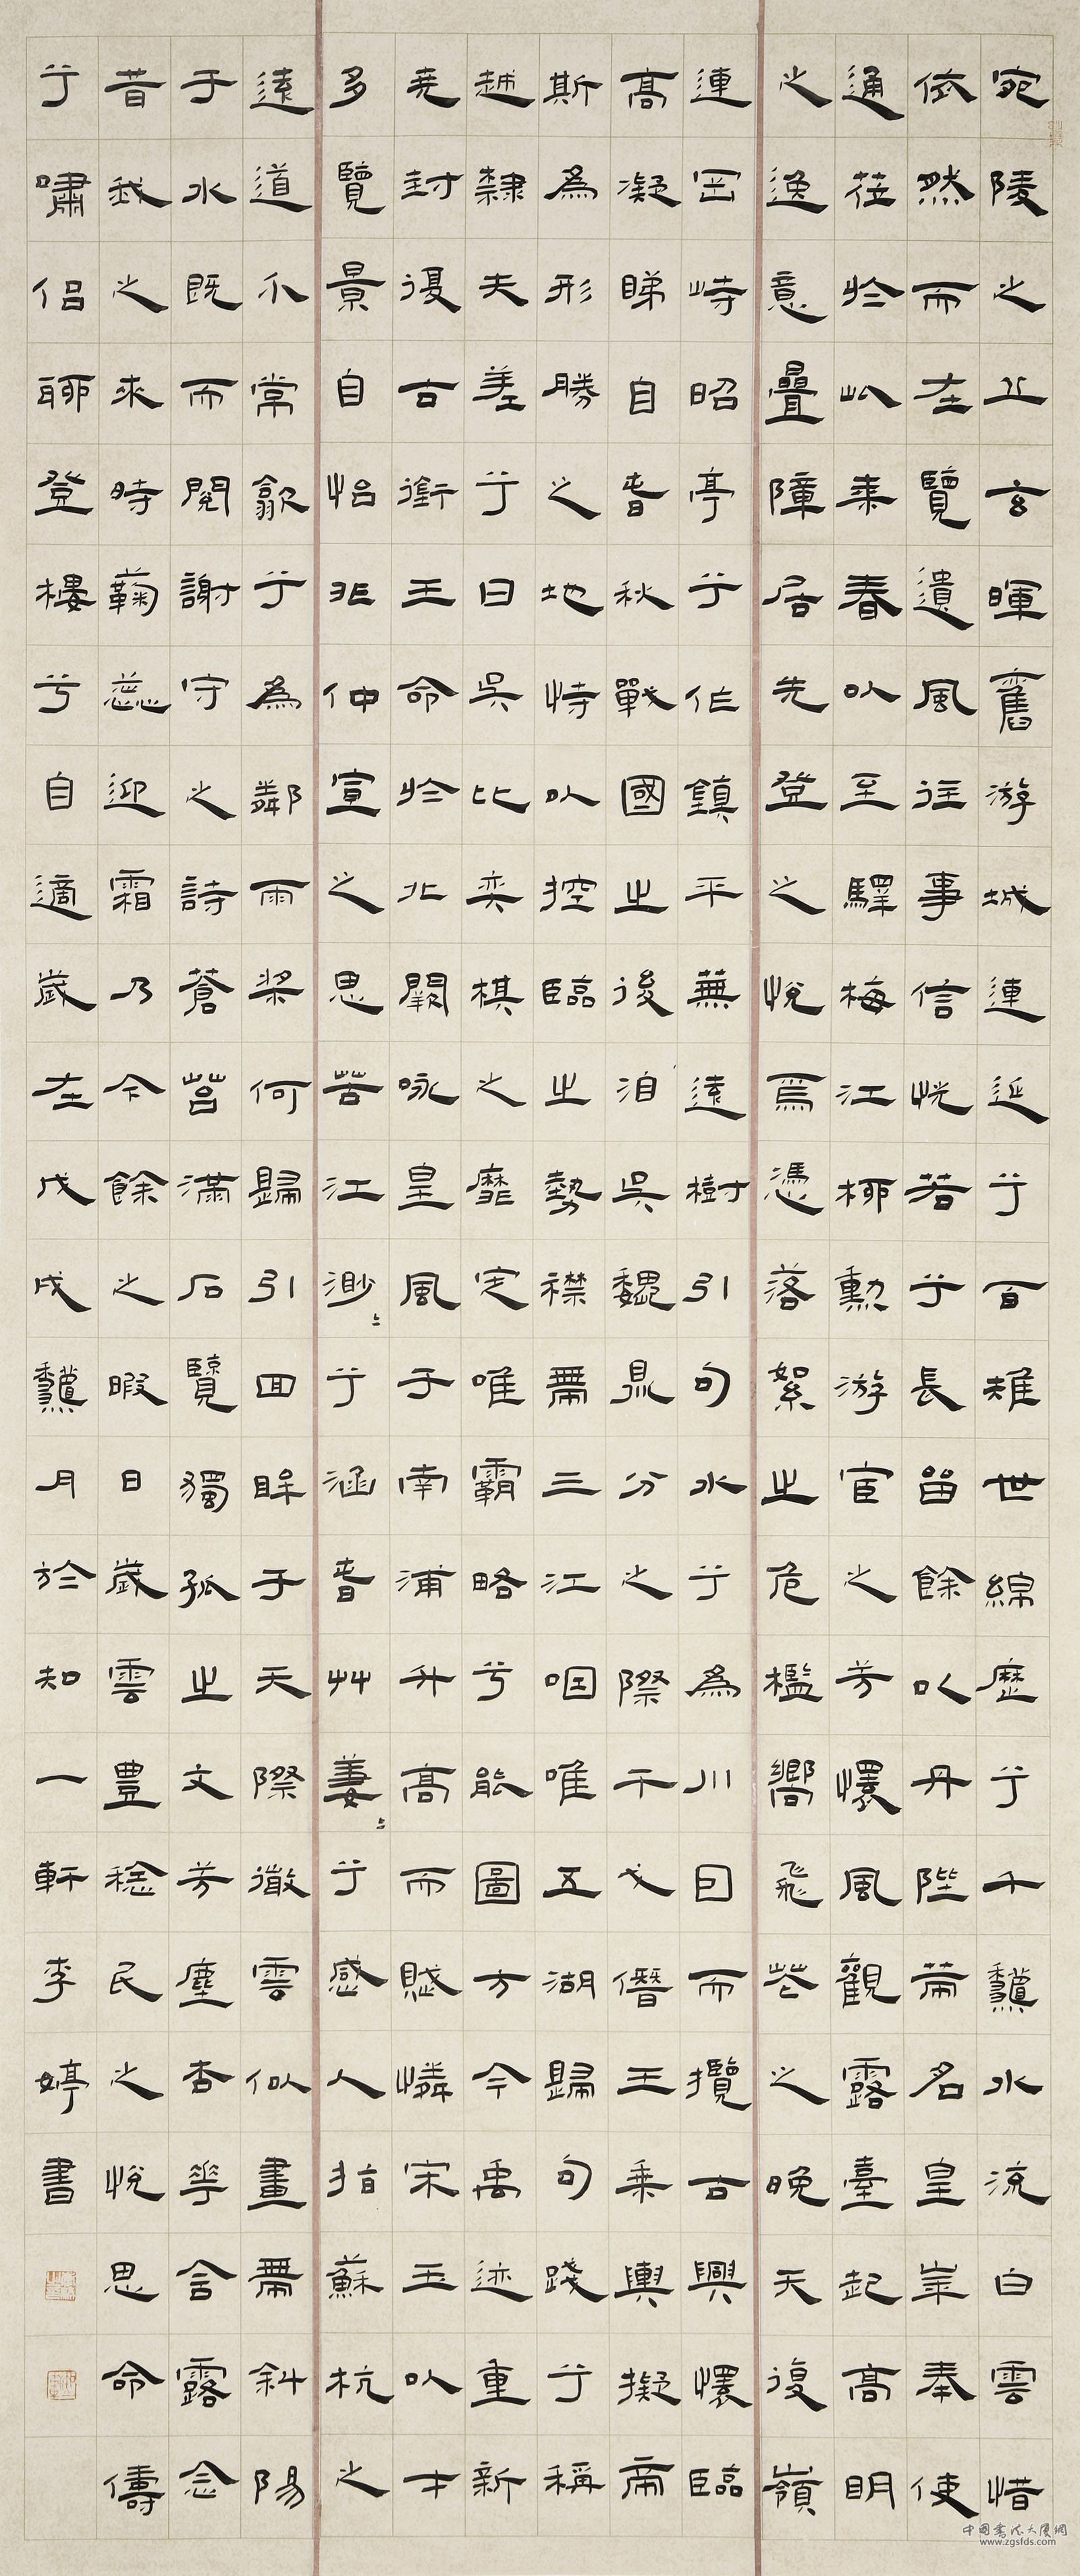 宛陵之丘玄暉舊游城連延兮百雉世綿歷兮千龝水流白雲惜
依然而在覽遺風往事信恍若兮長留餘以丹陛名皇華奉使
通莅於此來春以至驛梅江柳勳游宦之芳懷風觀露臺起高明
之逸意疊障居先登之悅焉憑落絮之危檻嚮飛花之晚天復嶺
連岡峙昭亭兮作鎮平蕪遠樹引句水兮為川回而攬古興懷臨
高凝睇自春秋戰國之後洎吳魏鼎分之際干戈僭王乘輿擬帝
斯為形勝之地恃以控臨之勢襟帶三江咽唯五湖歸句踐兮稱
越隸夫差兮曰吳比奕棋之靡定唯霸略兮能圖方今禹迹重新
堯封復古銜王命於北闕咏皇風于南浦升高而賦憐宋玉以才
多覽景自怡非仲宣之思苦江渺〻兮涵春艸萋〻兮感人指蘇杭之
遠道不常歙兮為鄰雨槳何歸引回眸于天際澂雲似畫帶斜陽
于水既而閱謝守之詩蒼苔滿石覽獨孤之文芳塵杏華含露念
昔我之來時鞠蕊迎霜乃今餘之暇日歲雲豐稔民之悅思命儔
兮嘯侶聊登樓兮自適歲在戊戌龝月於知一軒李婷書
中國書法大廈網
www.zgsfds.com